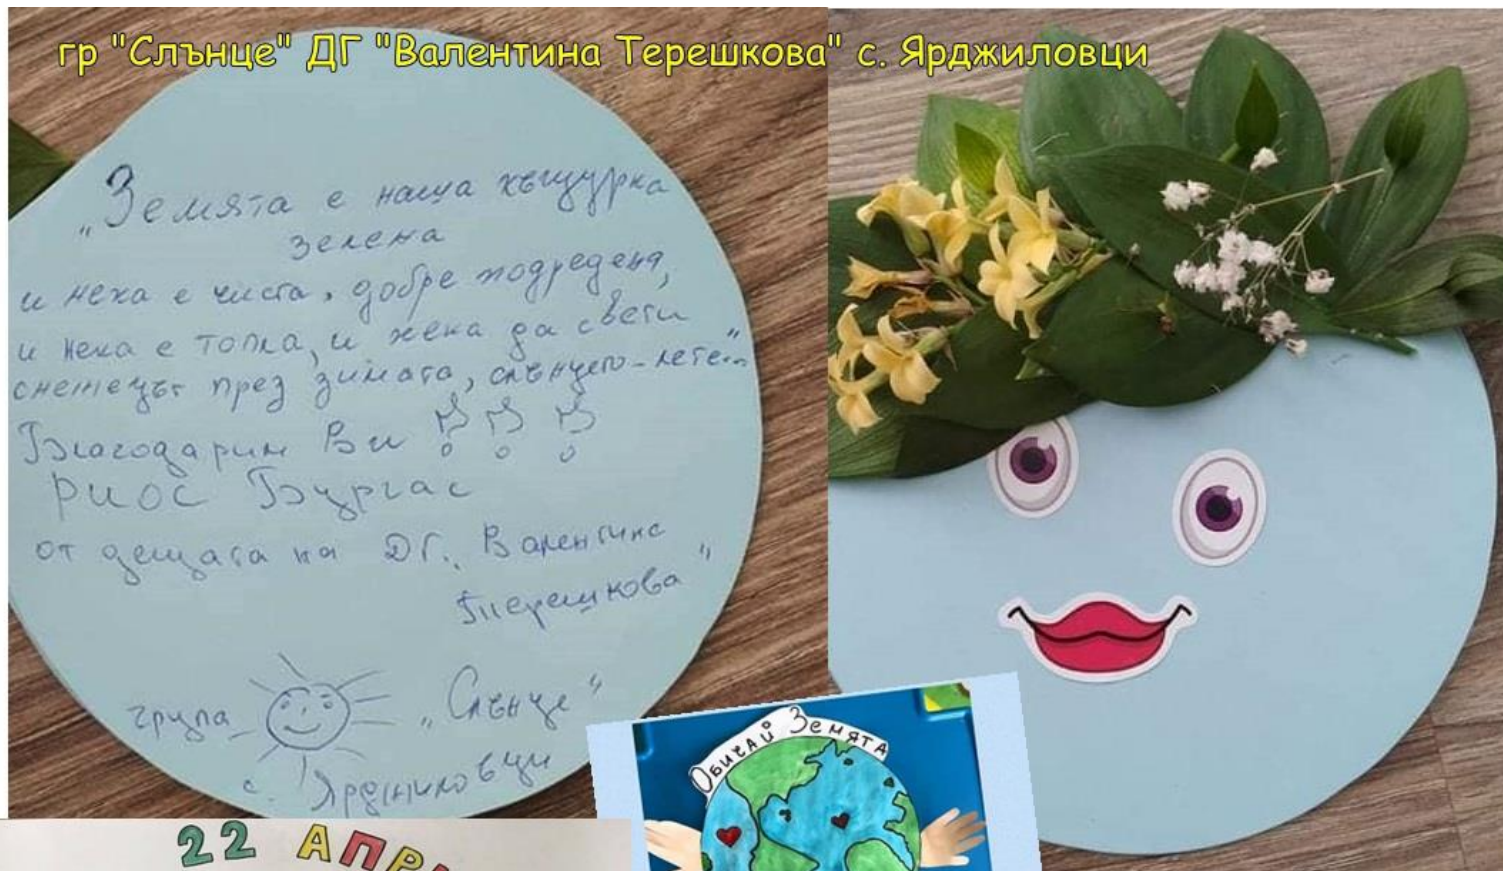 гр "Слънце" ДГ "Валентина Терешкова" с. Ярджиловци
„Земята е наша къщурка
зелена
и нека е чиста, добре подредена,
и нека е топла, и нека да свети
снежецът през зимата, слънцето-лете..."
Благодарим Ви
РИОС Бургас
от децата на ДГ „Валентина
Терешкова"
група „Слънце"
с. Ярджиловци
Обичай Земята
22 АПРИ